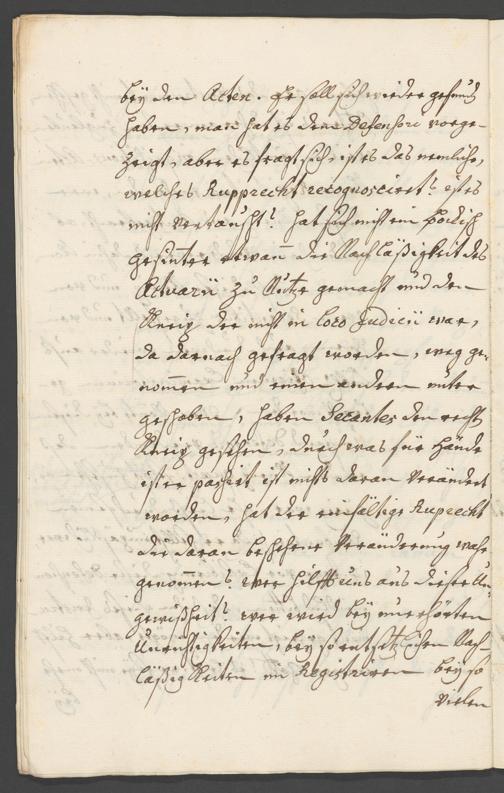 bey den Acten. Er soll sich wieder gefunden
haben, man hat es dem Defensori vorge-
zeigt, aber es fragt sich, ist es das nemliche,
welches Rupprecht recognosciret? ist es
nicht vertauscht? hat sich nicht ein boßhafft
gesinnter etwann die Nachläßigkeit des
Actuarii zu Nutze gemacht und den
der nicht in Loco Judicii war,
da darnach gefragt worden, weg ge-
nommen und einen andern unter
geschoben, haben Secantes den recht
gesehen, durch was für Hände
ist er passirt ist nichts daran verändert
worden, hat der einfältige Ruprecht
die daran beschehene Veränderung wahr
genommen? wer hilfft uns aus dieser Un-
gewißheit? wer wird bey unerhörten
Unrichtigkeiten, bey so entsetzlichen Nach-
läßigkeiten im Registriren bey so
vielen